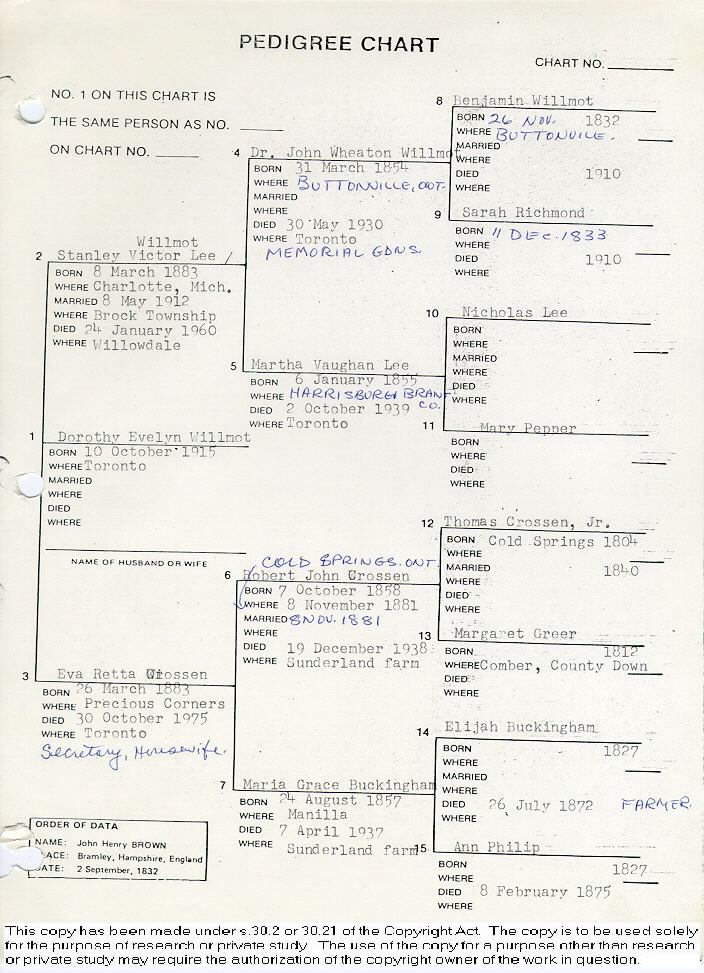 PEDIGREE CHART
CHART NO.
NO. 1 ON THIS CHART IS
THE SAME PERSON AS NO.
ON CHART NO.
8 Benjamin Willmot
BORN 26 NOV. 1832
WHERE BUTTONVILLE.
MARRIED
WHERE
DIED 1910
WHERE
4 Dr. John Wheaton Willmot
BORN 31 March 1854
WHERE BUTTONVILLE, ONT.
MARRIED
WHERE
DIED 30 May 1930
WHERE Toronto
MEMORIAL GDNS.
9 Sarah Richmond
BORN 11 DEC. 1833
WHERE
DIED 1910
WHERE
Willmot
2 Stanley Victor Lee /
BORN 8 March 1883
WHERE Charlotte, Mich.
MARRIED 8 May 1912
WHERE Brock Township
DIED 24 January 1960
WHERE Willowdale
10 Nicholas Lee
BORN
WHERE
MARRIED
WHERE
DIED
WHERE
5 Martha Vaughan Lee
BORN 6 January 1855
WHERE HARRISBURG BRANT CO.
DIED 2 October 1939
WHERE Toronto
11 Mary Pepper
BORN
WHERE
DIED
WHERE
1 Dorothy Evelyn Willmot
BORN 10 October 1915
WHERE Toronto
MARRIED
WHERE
DIED
WHERE
NAME OF HUSBAND OR WIFE
12 Thomas Crossen, Jr.
BORN Cold Springs 1804
WHERE
MARRIED 1840
WHERE
DIED
WHERE
COLD SPRINGS. ONT.
6 Robert John Crossen
BORN 7 October 1858
WHERE 8 November 1881
MARRIED 8 NOV. 1881
WHERE
DIED 19 December 1938
WHERE Sunderland farm
13 Margaret Greer
BORN 1812
WHERE Comber, County Down
DIED
WHERE
3 Eva Retta Crossen
BORN 26 March 1883
WHERE Precious Corners
DIED 30 October 1975
WHERE Toronto
Secretary, Housewife.
14 Elijah Buckingham
BORN 1827
WHERE
MARRIED
WHERE
DIED 26 July 1872 FARMER.
WHERE
7 Maria Grace Buckingham
BORN 24 August 1857
WHERE Manilla
DIED 7 April 1937
WHERE Sunderland farm
15 Ann Philip
BORN 1827
WHERE
DIED 8 February 1875
WHERE
ORDER OF DATA
NAME: John Henry BROWN
LACE: Bramley, Hampshire, England
DATE: 2 September, 1832
This copy has been made under s.30.2 or 30.21 of the Copyright Act. The copy is to be used solely
for the purpose of research or private study. The use of the copy for a purpose other than research
or private study may require the authorization of the copyright owner of the work in question.